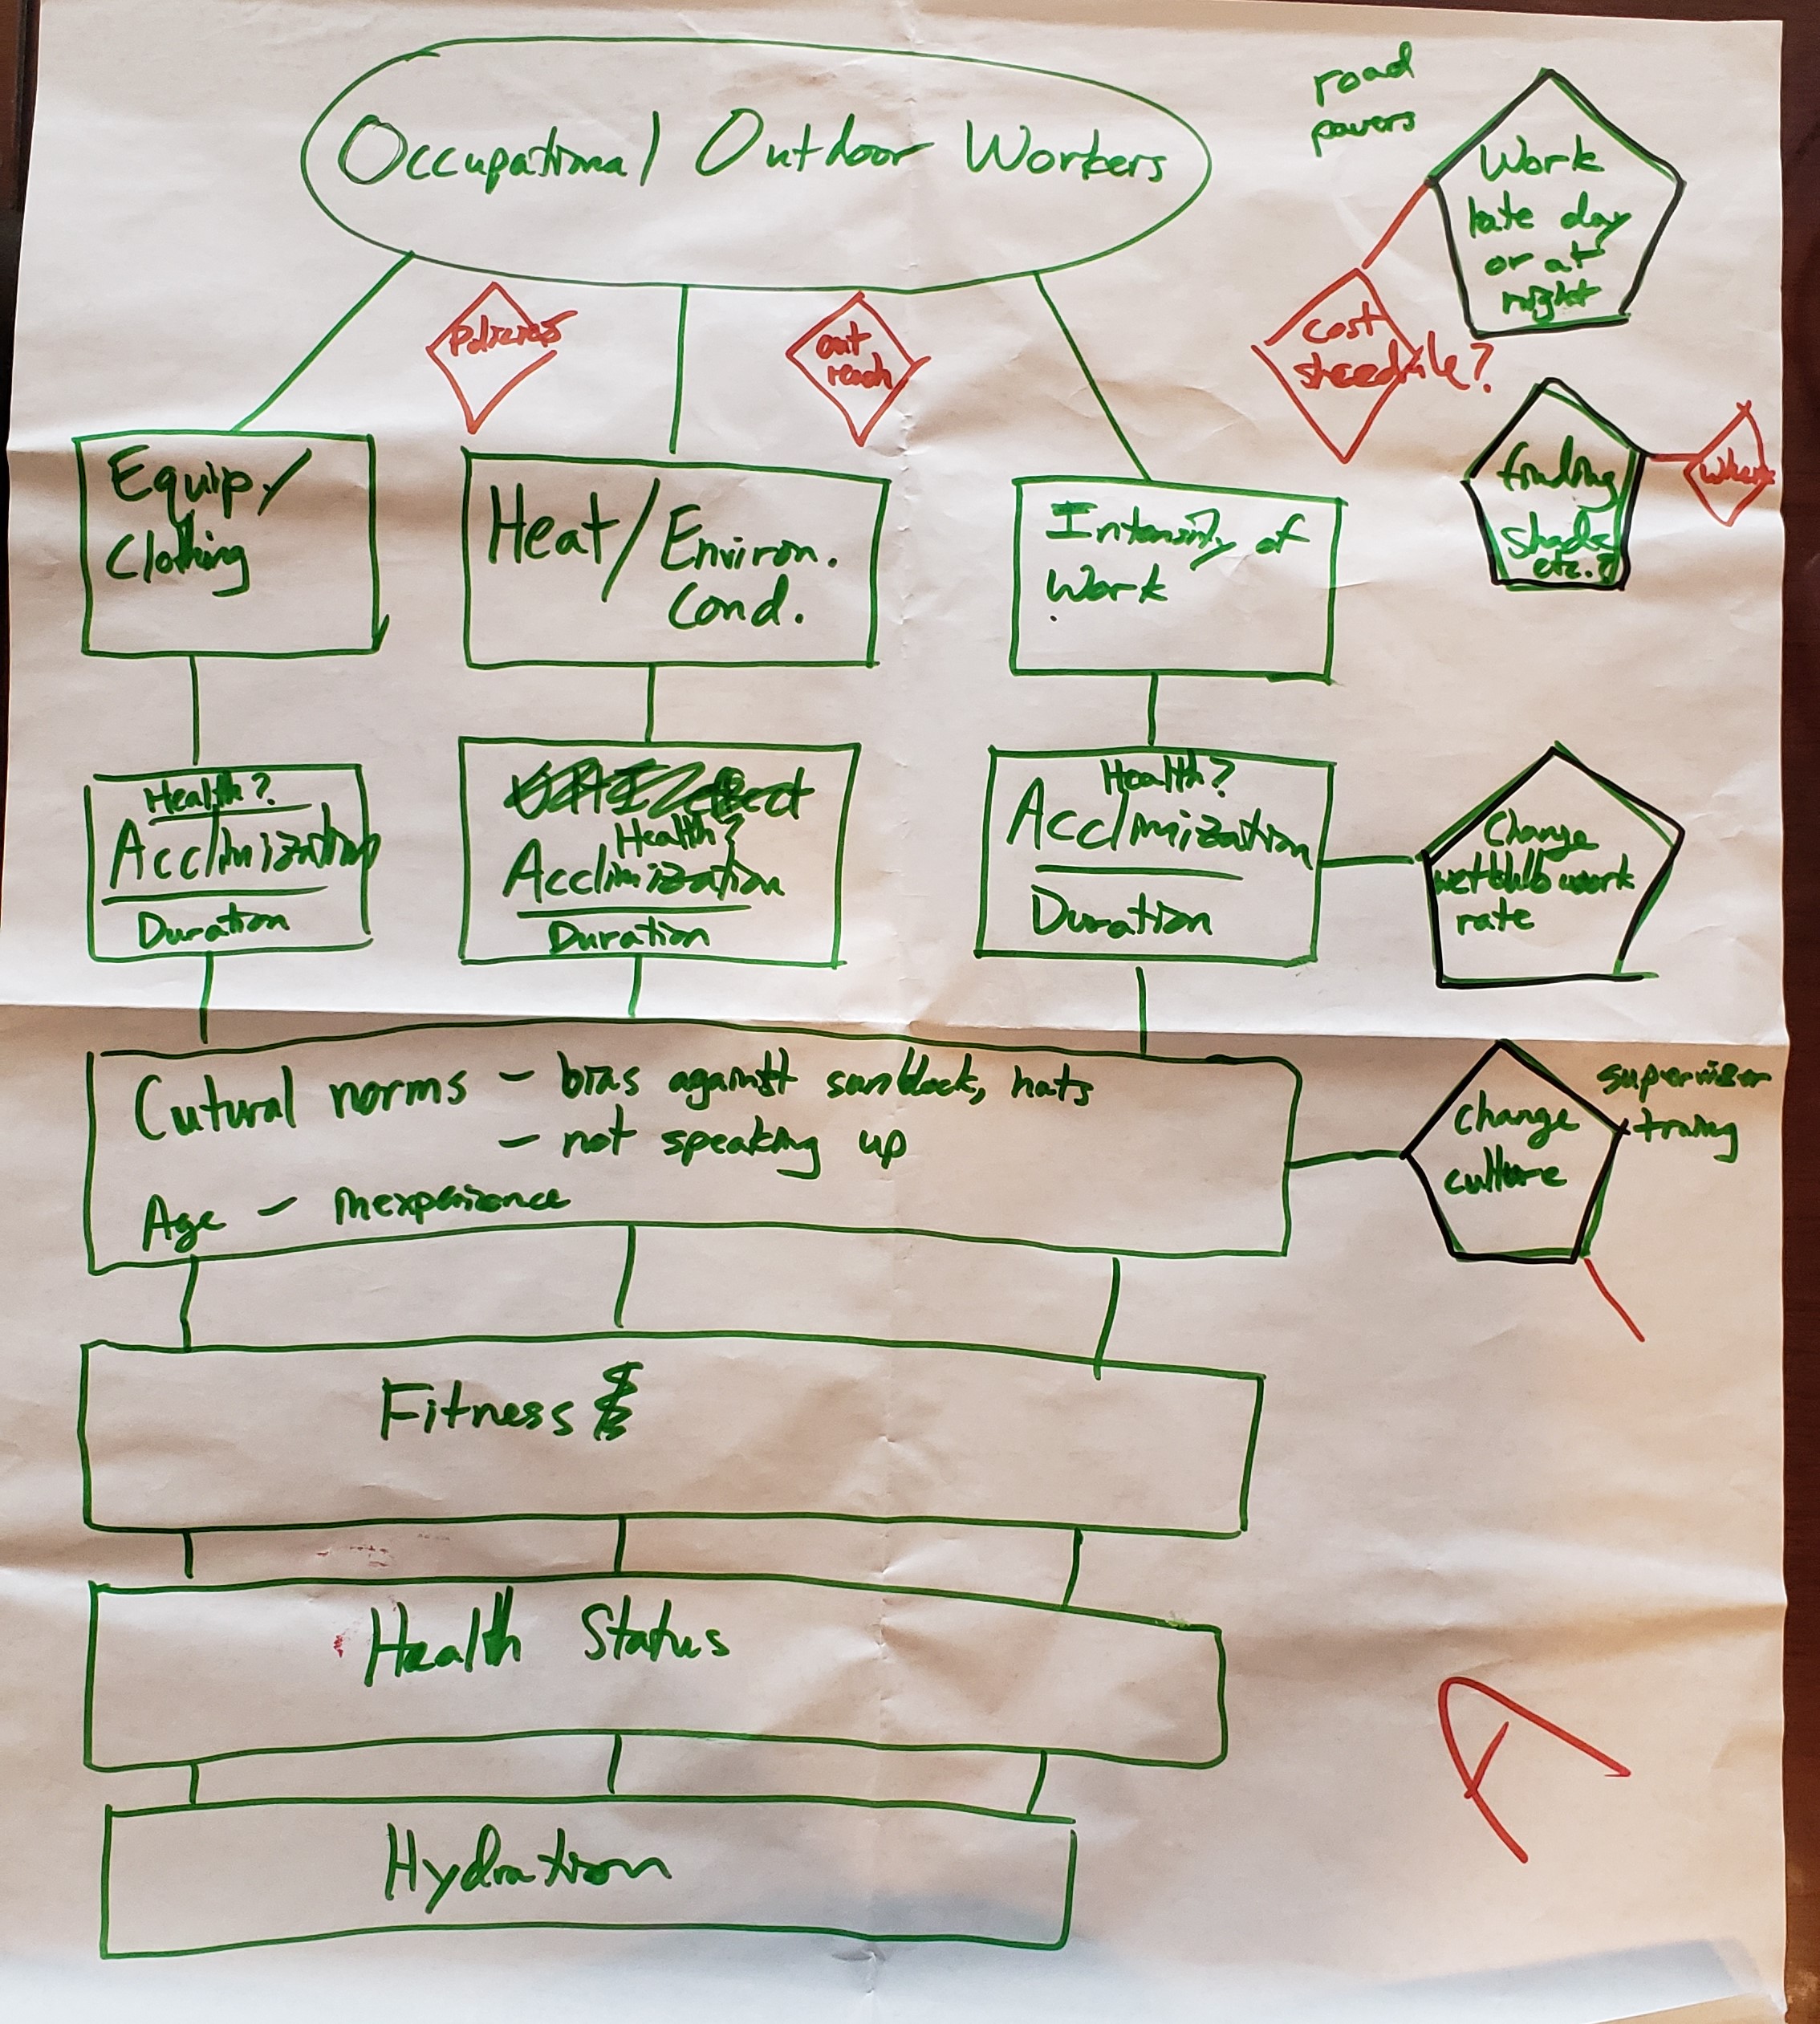 Occupational Outdoor Workers
road
pavers
Work
late day
or at
night
Policies
out
reach
cost
sheedule?
finding
shade
etc.?
where
Equip/
Clothing
Heat/Environ.
Cond.
Intensity of
Work
Health?
Acclimization
Duration
effect
Health?
Acclimization
Duration
Health?
Acclimization
Duration
Change
wetbulb work
rate
Cutural norms - bias against sunblock, hats
- not speaking up
Age - inexperience
Change
culture
supervisor
traing
Fitness
Health Status
Hydration
A